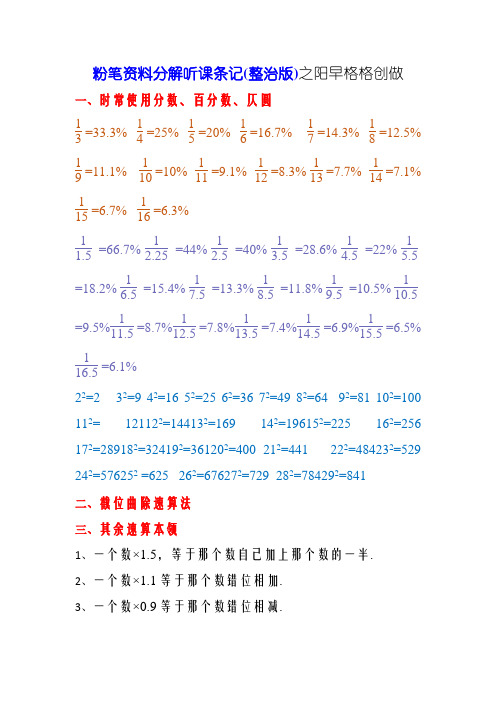 粉笔资料分解听课条记(整治版)之阳早格格创做
一、时常使用分数、百分数、仄圆
1/3=33.3% 1/4=25% 1/5=20% 1/6=16.7% 1/7=14.3% 1/8=12.5%
1/9=11.1% 1/10=10% 1/11=9.1% 1/12=8.3% 1/13=7.7% 1/14=7.1%
1/15=6.7% 1/16=6.3%
1/1.5=66.7% 1/2.25=44% 1/2.5=40% 1/3.5=28.6% 1/4.5=22% 1/5.5
=18.2% 1/6.5=15.4% 1/7.5=13.3% 1/8.5=11.8% 1/9.5=10.5% 1/10.5
=9.5% 1/11.5=8.7% 1/12.5=7.8% 1/13.5=7.4% 1/14.5=6.9% 1/15.5=6.5%
1/16.5=6.1%
2²=2 3²=9 4²=16 5²=25 6²=36 7²=49 8²=64 9²=81 10²=100
11²= 12112²=14413²=169 14²=19615²=225 16²=256
17²=28918²=32419²=36120²=400 21²=441 22²=48423²=529
24²=57625² =625 26²=67627²=729 28²=78429²=841
二、截位曲除速算法
三、其余速算本领
1、一个数×1.5，等于那个数自己加上那个数的一半.
2、一个数×1.1等于那个数错位相加.
3、一个数×0.9等于那个数错位相减.